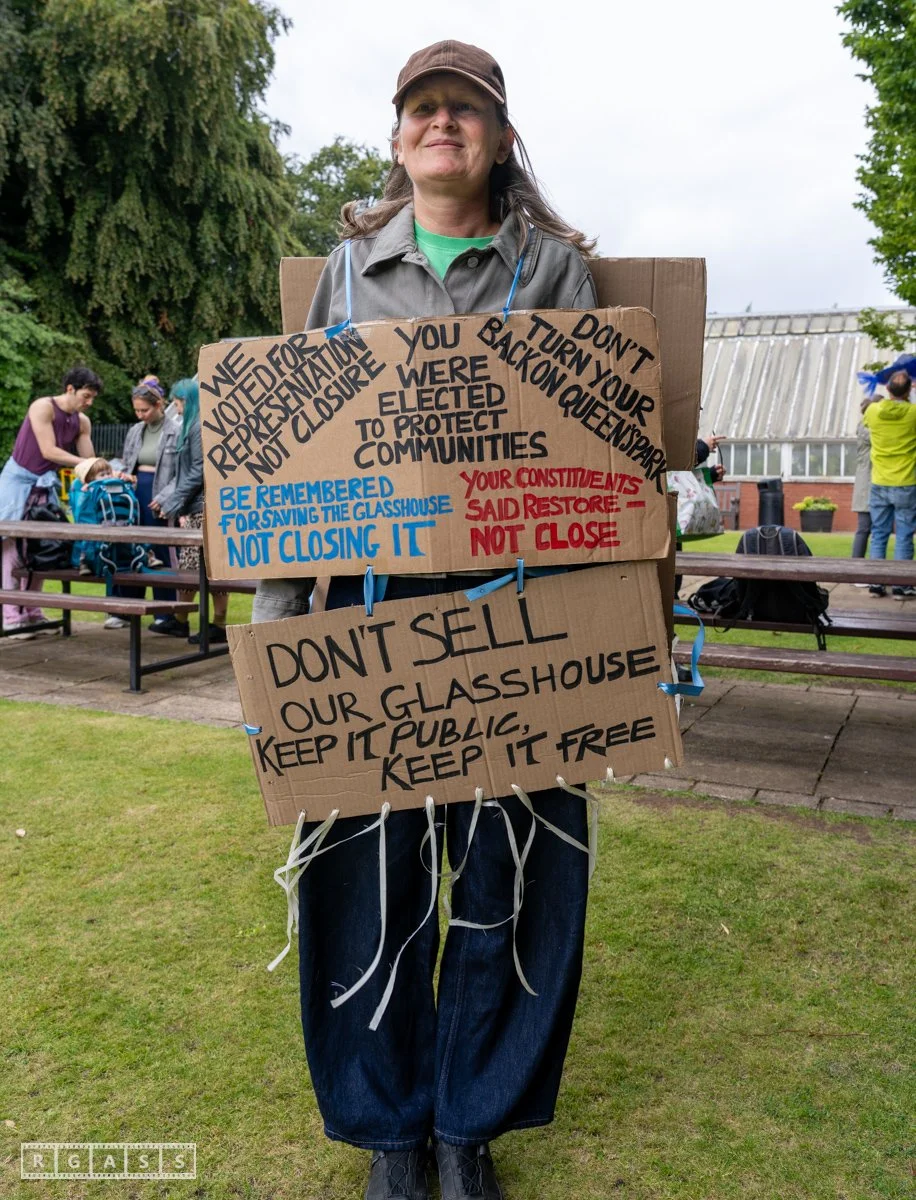 WE
VOTED FOR
REPRESENTATION
NOT CLOSURE
YOU
WERE
ELECTED
TO PROTECT
COMMUNITIES
DON'T
TURN YOUR
BACK ON QUEEN'S PARK
BE REMEMBERED
FOR SAVING THE GLASSHOUSE
NOT CLOSING IT
YOUR CONSTITUENTS
SAID RESTORE –
NOT CLOSE
DON'T SELL
OUR GLASSHOUSE
KEEP IT PUBLIC,
KEEP IT FREE
RGASS